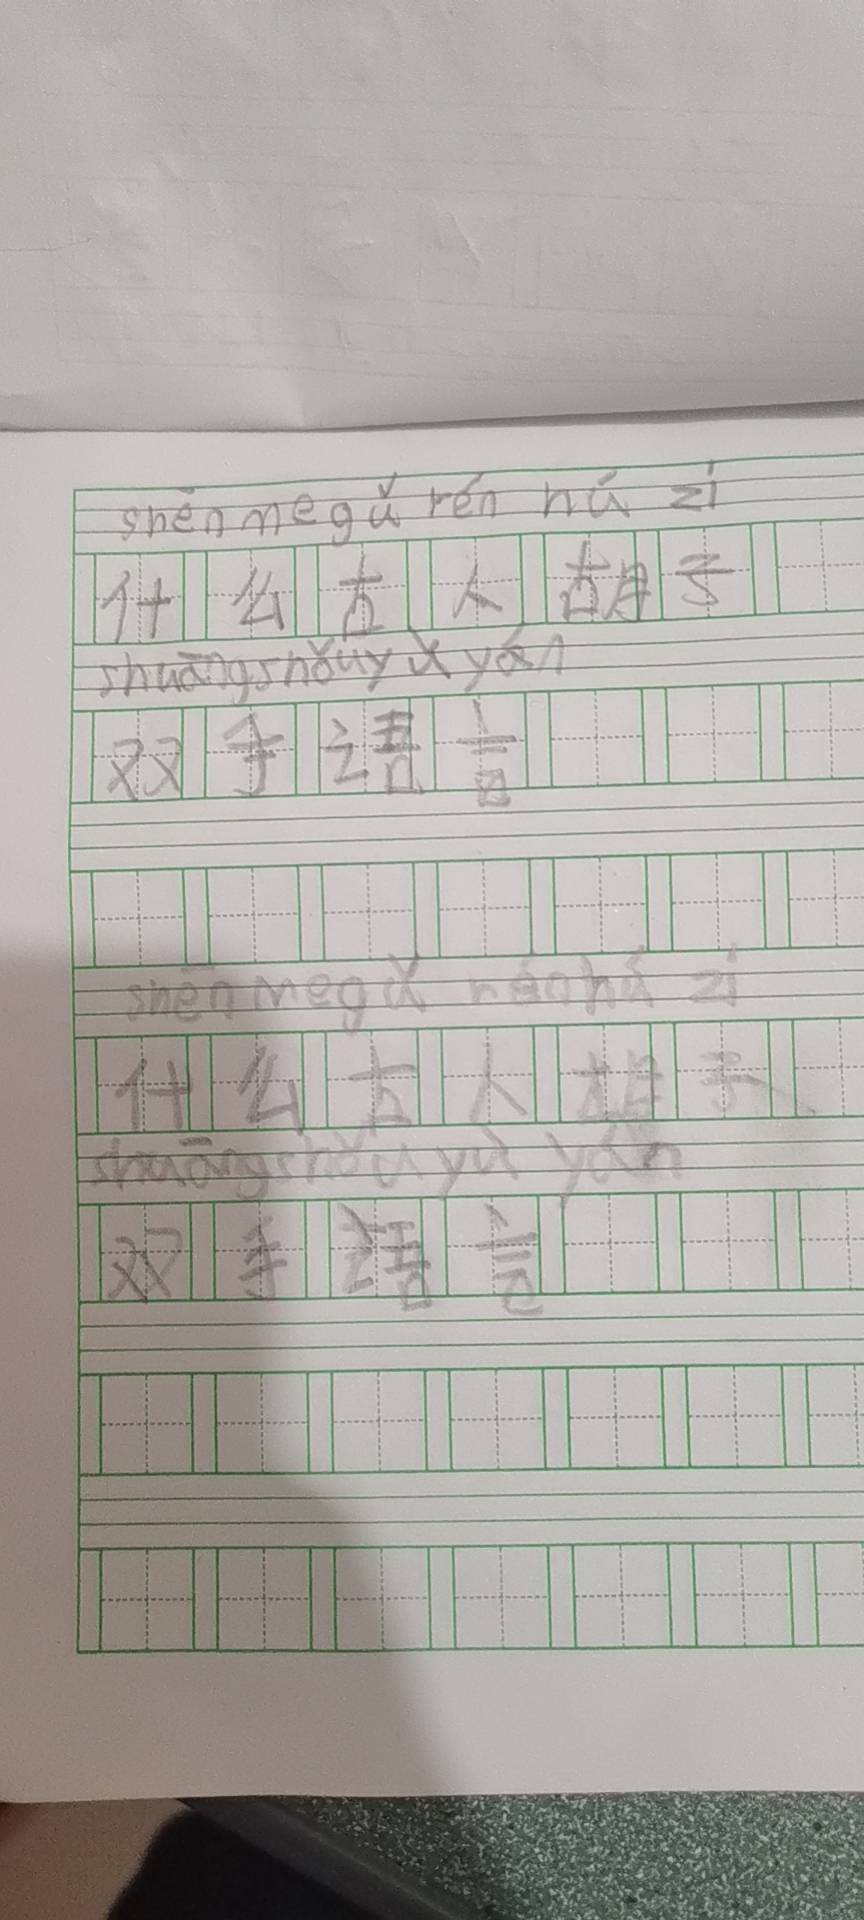 shēn me gǔ rén hú zi
什么古人胡子
shuāng shǒu yǔ yán
双手语言
shēn me gǔ rén hú zi
什么古人胡子
shuāng shǒu yǔ yán
双手语言